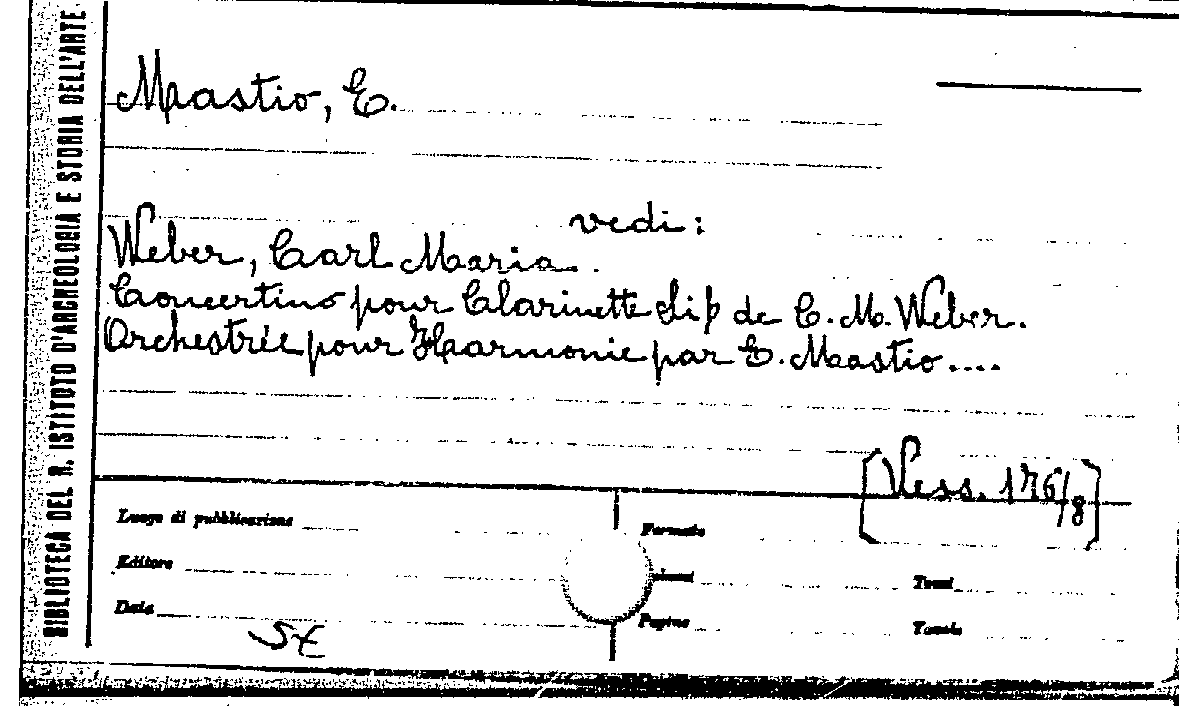 BIBLIOTECA DEL R. ISTITUTO D'ARCHEOLOGIA E STORIA DELL'ARTE
Mastio, E.
vedi:
Weber, Carl Maria.
Concertino pour Clarinette Si♭ de C. M. Weber.
Orchestrée pour Harmonie par E. Mastio....
[Vess. 176/8]
Luogo di pubblicazione
Formato
Editore
Tomi
Data
Pagine
Tavole
SE